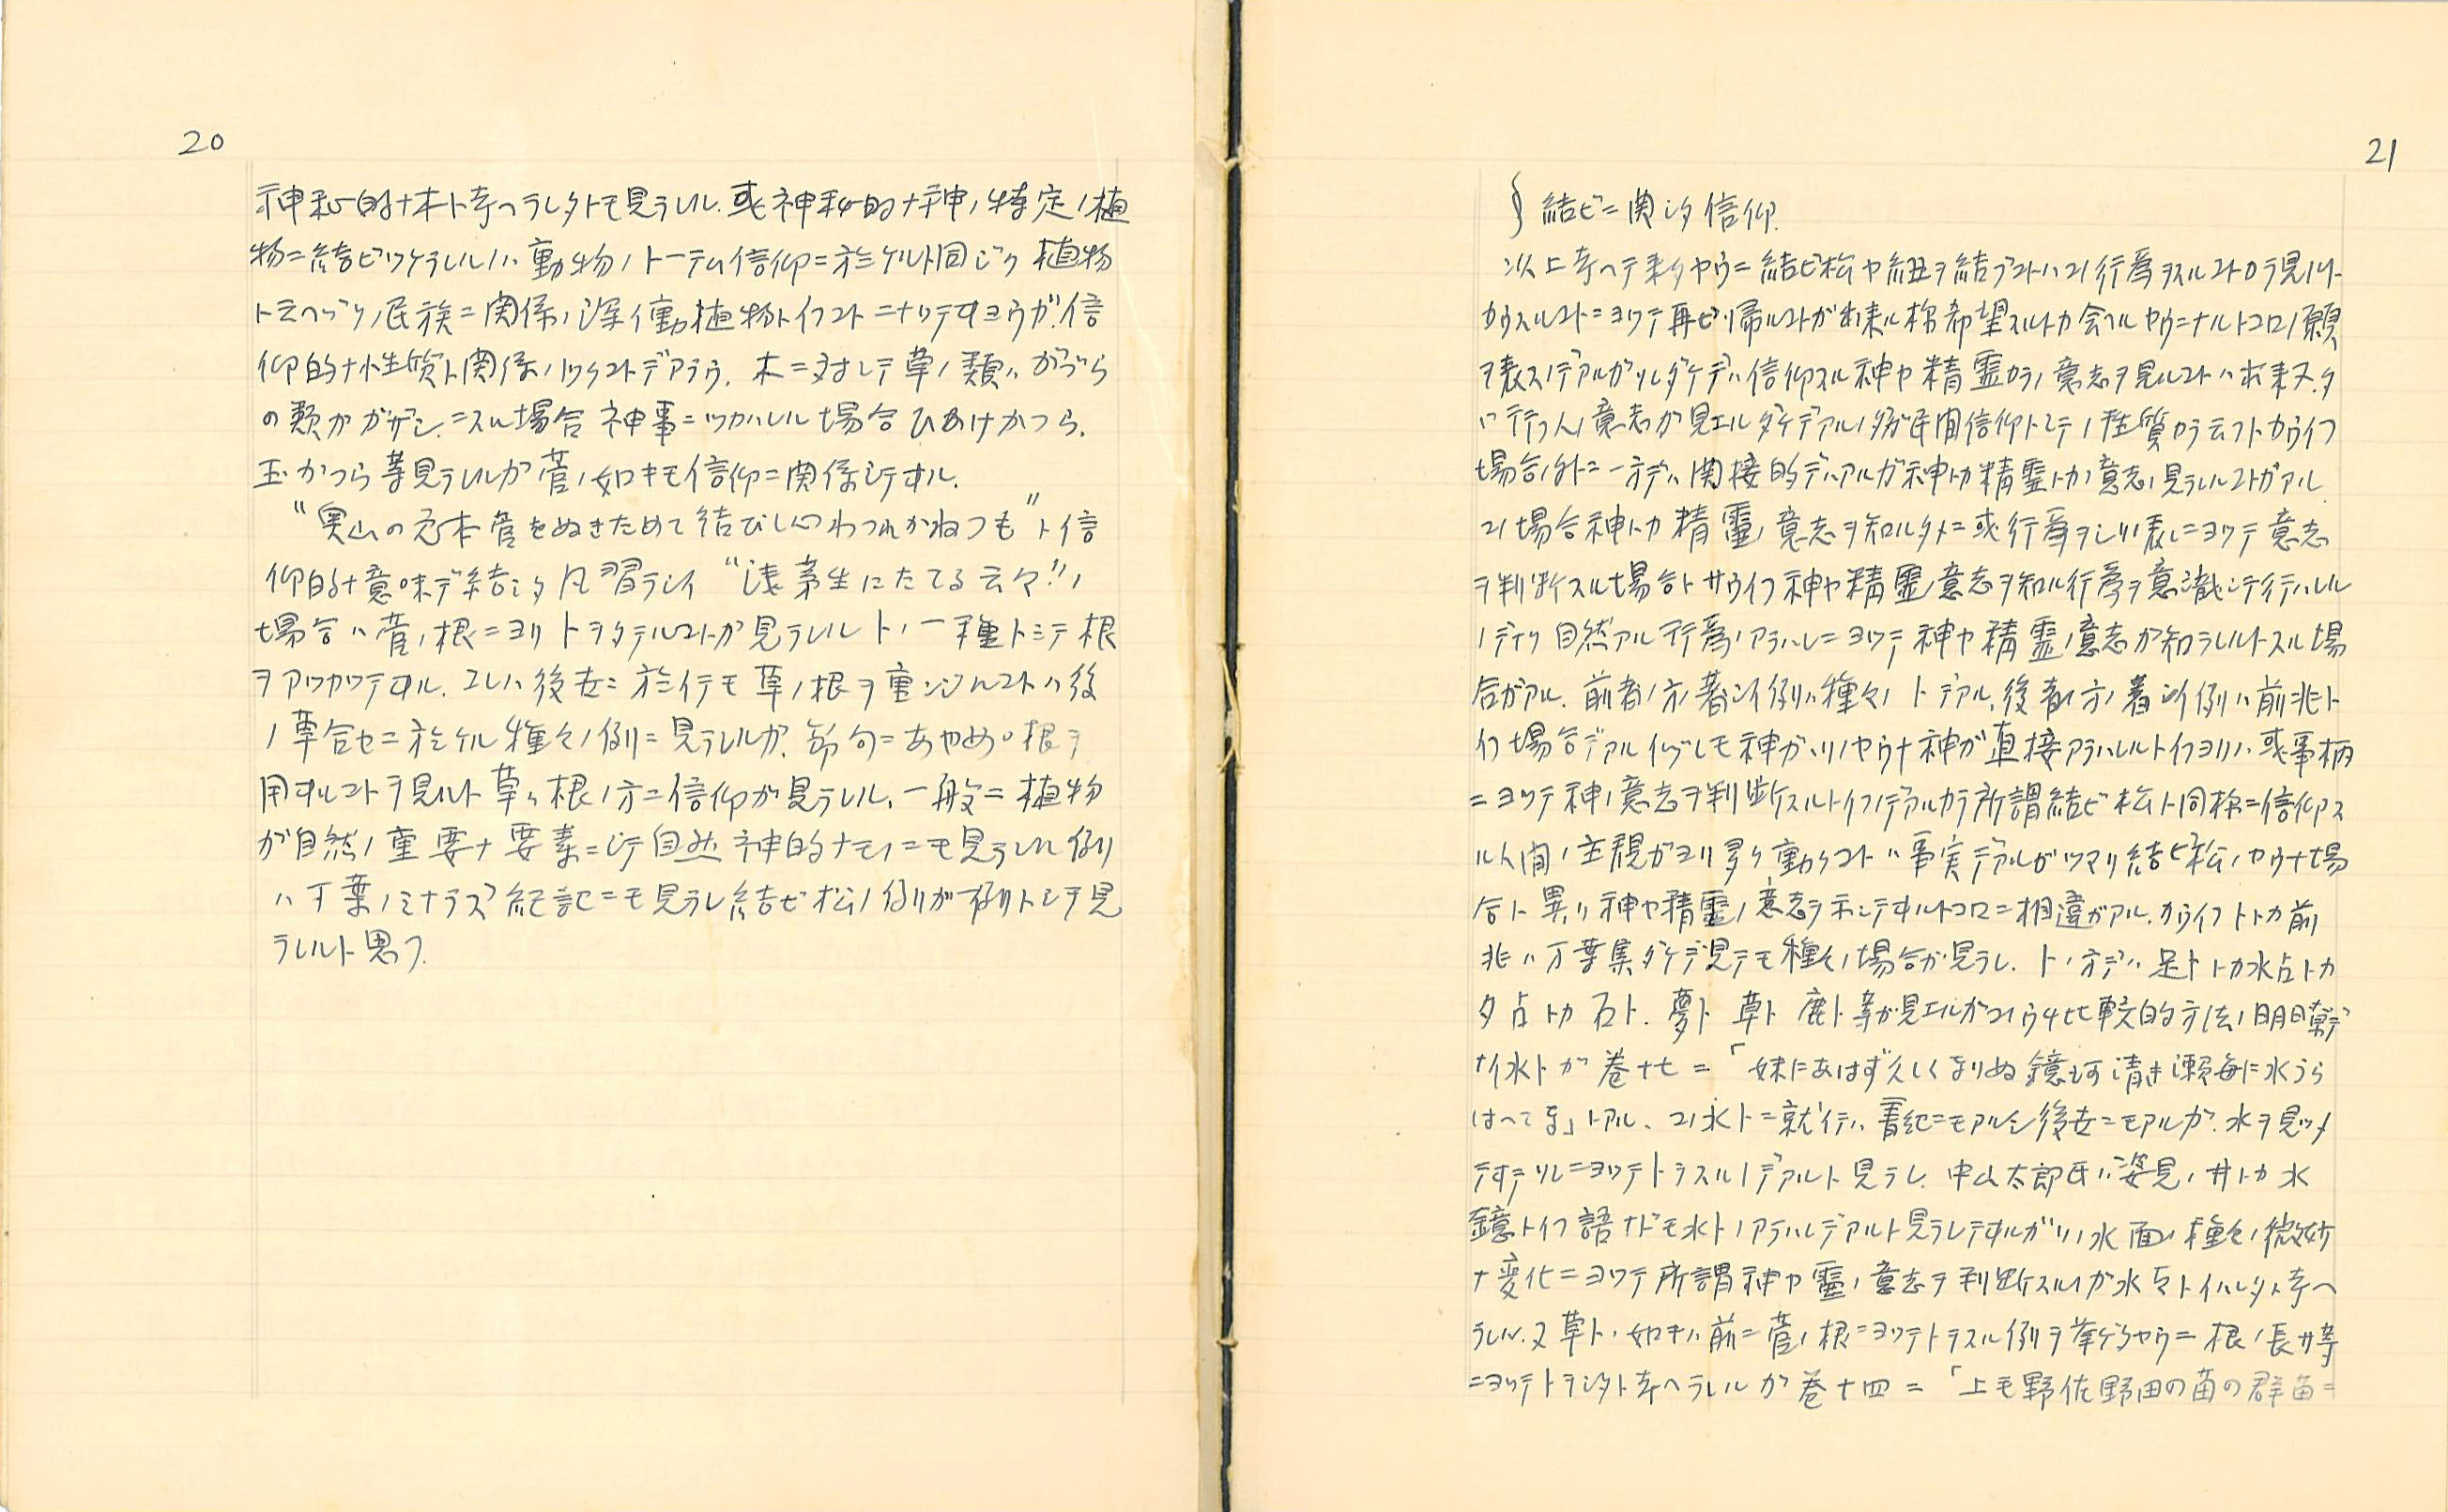 20
神秘的ナ木ト考ヘラレタトモ見ラレル. 或ハ神秘的ナ神ノ特定ノ植
物ニ結ビツケラレルノハ動物ノトーテム信仰ニ於ケルト同ジク植物
トニヘヅク民族ニ関係ノ深イ動植物トイフコトニナツテオヨウガ. 信
仰的ナ性質ト関係ノツクコトデアラウ. 木ニ対シテ草ノ類ハかづら
の類ガカザシニスル場合神事ニツカハレル場合ひかげかつら.
玉かつら等見ラレルガ菅ノ如キモ信仰ニ関係シテオル.
“奥山の岩本菅をぬきためて結びし心わすれかねつも”ト信
仰的ナ意味デ結ンダ風習ラシイ “浅茅生にたてる云々”ノ
場合ハ菅ノ根ニヨリトヲタテルコトガ見ラレルトノ一種トシテ根
ヲアツカツテオル. コレハ後世ニ於イテモ草ノ根ヲ重ンジルコトハ後
ノ草合セニ於ケル種々ノ例ニ見ラレルガ. 節句ニあやめの根ヲ
用オルコトヲ見ルト草ノ根ノ方ニ信仰ガ見ラレル. 一般ニ植物
が自然ノ重要ナ要素ニシテ自然神的ナモノニモ見ラレル例
ハ万葉ノミナラズ紀記ニモ見ラレ結ビ松ノ例ガ一例トシテ見
ラレルト思フ.
21
§ 結ビニ関シタ信仰.
以上考ヘテ来タヤウニ結ビ松ヤ紐ヲ結ブコトハコノ行為ヲスルコトロヲ見ルト
カウスルコトニヨツテ再ビ帰ルコトガ出来ル様希望スルトカ会ヘルヤウニナルトコロノ願
ヲ表スノデアルガソレダケデハ信仰スル神ヤ精霊カラノ意志ヲ見ルコトハ出来ヌ. タ
ダ行フ人ノ意志ガ見エルダケデアルノダガ民間信仰トシテノ性質カラ云フトカウイフ
場合ノ外ニ一方デハ間接的デハアルガ神トカ精霊トカノ意志ノ見ラレルコトガアル
コノ場合神トカ精霊ノ意志ヲ知ルタメニ或行為ヲシソノ表レニヨツテ意志
ヲ判断スル場合トサウイフ神ヤ精霊ノ意志ヲ知ル行為ヲ意識シテ行ハレル
ノデナク自然アル行為ノアラハレニヨツテ神ヤ精霊ノ意志ガ知ラレルトスル場
合ガアル. 前者ノ方ノ著シイ例ハ種々ノトデアル. 後者ノ方ノ著シイ例ハ前兆ト
イフ場合デアルイヅレモ神ガカリノヤウナ神ガ直接アラハレルトイフヨリハ或事柄
ニヨツテ神ノ意志ヲ判断スルトイフノデアルカラ所謂結ビ松ト同様ニ信仰ス
ル人間ノ主観ガヨリ多ク動クコトハ事実デアルガツマリ結ビ松ノヤウナ場
合ト異リ神ヤ精霊ノ意志ヲ示シテオルトコロニ相違ガアル. カウイフトトカ前
兆ハ万葉集ダケデ見テモ種々ノ場合ガ見ラレ. トノ方デハ足トトカ水占トカ
夕占トカ石ト. 夢ト 草ト 鹿ト等ガ見エルガコノウチ比較的方法ノ明瞭デ
ナイ水トガ巻十七ニ「妹にあはず久しくなりぬ鏡河清き瀬毎に水うら
はへてな」トアル、コノ水トニ就イテハ書紀ニモアルシ後世ニモアルガ. 水ヲ見ツメ
テオテソレニヨツテトヲスルノデアルト見ラレ. 中山太郎氏ハ姿見ノ井トカ水
鏡トイフ語ナドモ水トノアラハレデアルト見ラレテオルガソノ水面ノ種々ノ微妙
ナ変化ニヨツテ所謂神ヤ霊ノ意志ヲ判断スルノガ水占トイハレタト考ヘ
ラレル. 又草トノ如キハ前ニ菅ノ根ニヨツテトヲスル例ヲ挙ゲタヤウニ根ノ長サ等
ニヨツテトヲシタト考ヘラレルガ巻十四ニ「上毛野佐野田の苗の群苗ニ